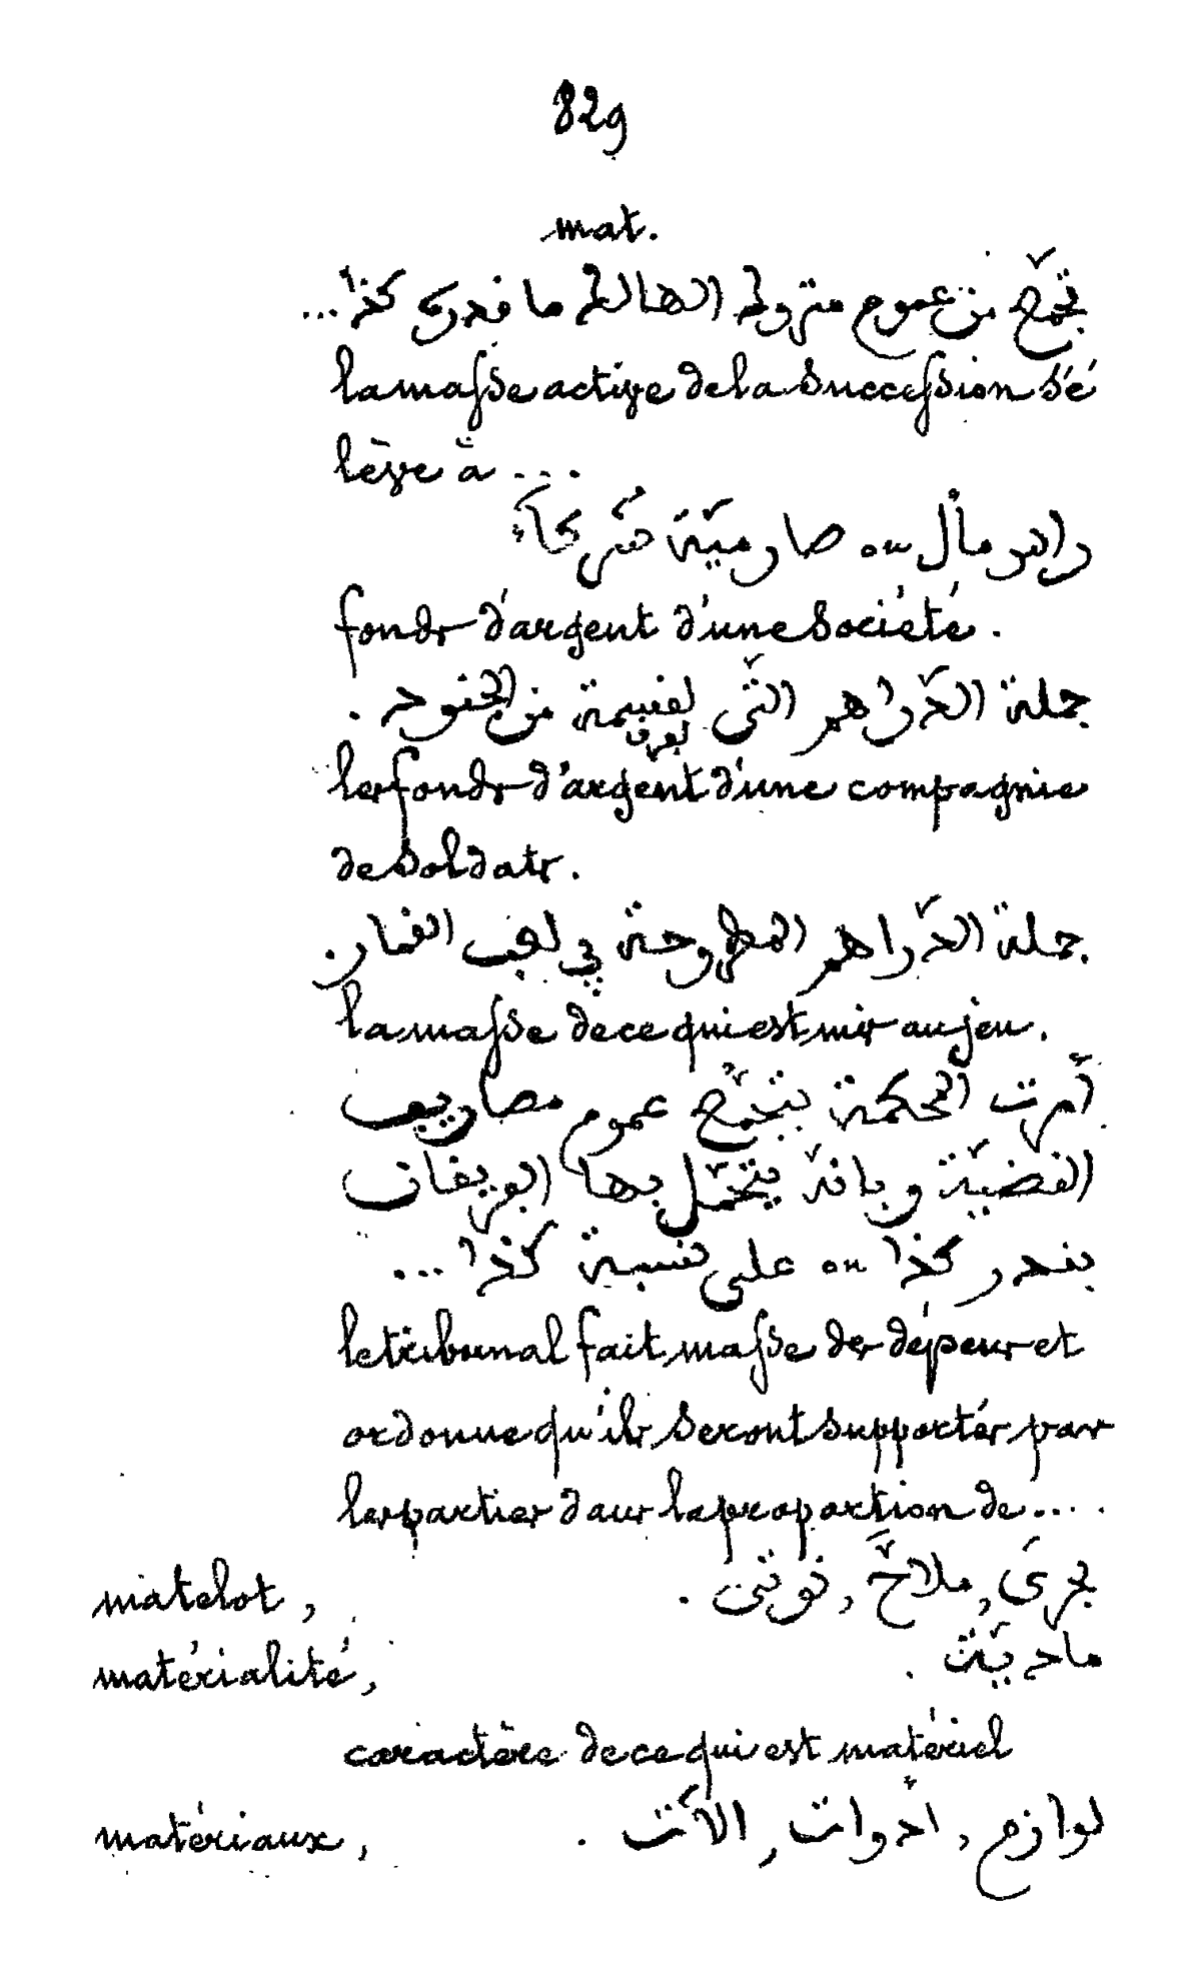 829
mat.
تجمّع من عموم متروك الهالك ما فدره كذا ...
la masse active de la succession s'é
lève à ...
راس مال ou صارميّة شركاء
fonds d'argent d'une société.
جملة الدّراهم التّي لفسمة من الجنود .
لعرف
les fonds d'argent d'une compagnie
de soldats.
جملة الدّراهم المطروحة في لعب الفمار.
la masse de ce qui est mis au jeu.
أمرت المحكمة بتجمّع عموم مصاريف
الفضيّة وبانّه يتحمّل بها العريفان
بفدر كذا ou على نسبة كذا ...
le tribunal fait masse des dépens et
ordonne qu'ils seront supportés par
les parties dans la proportion de ....
matelot, بحري, ملاّح, نوتي .
matérialité, ماديّة .
caractère de ce qui est matériel
matériaux, لوازم, أدوات, الآت .